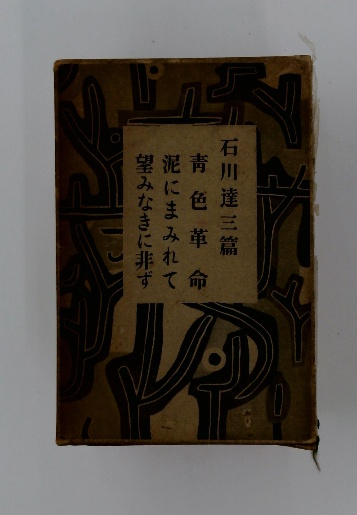 石川達三篇
青色革命
泥にまみれて
望みなきに非ず